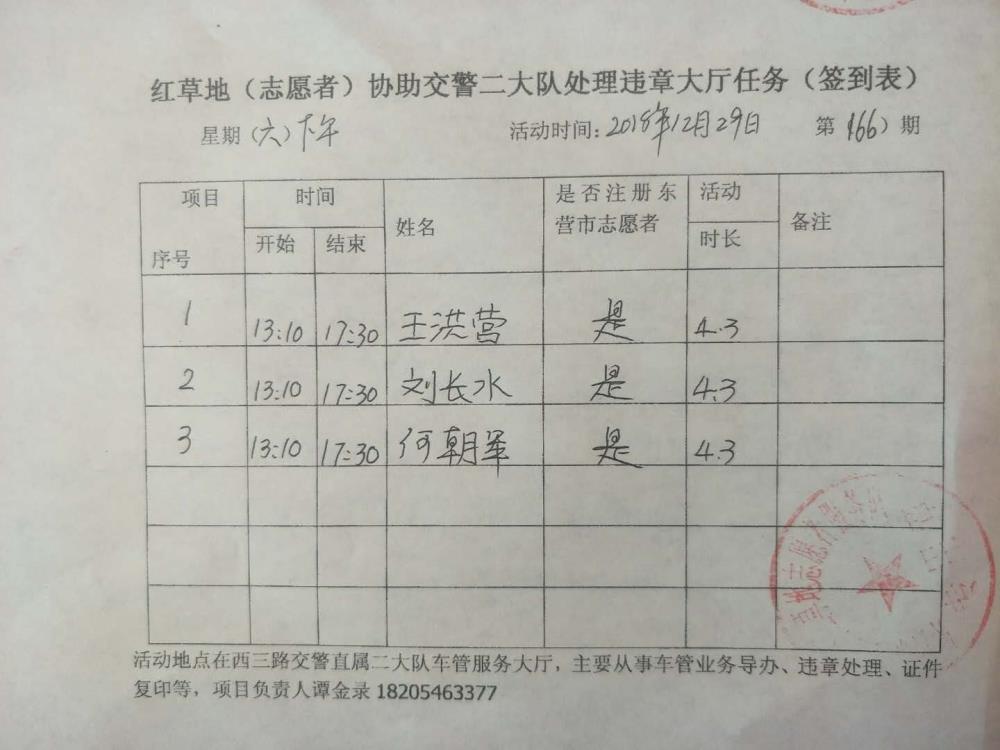 红草地（志愿者）协助交警二大队处理违章大厅任务（签到表）
星期（六）下午 活动时间：2018年12月29日 第（166）期
项目 时间 姓名 是否注册东营市志愿者 活动时长 备注
序号 开始 结束
1 13:10 17:30 王洪营 是 4.3
2 13:10 17:30 刘长水 是 4.3
3 13:10 17:30 何朝军 是 4.3
活动地点在西三路交警直属二大队车管服务大厅，主要从事车管业务导办、违章处理、证件
复印等，项目负责人谭金录 18205463377